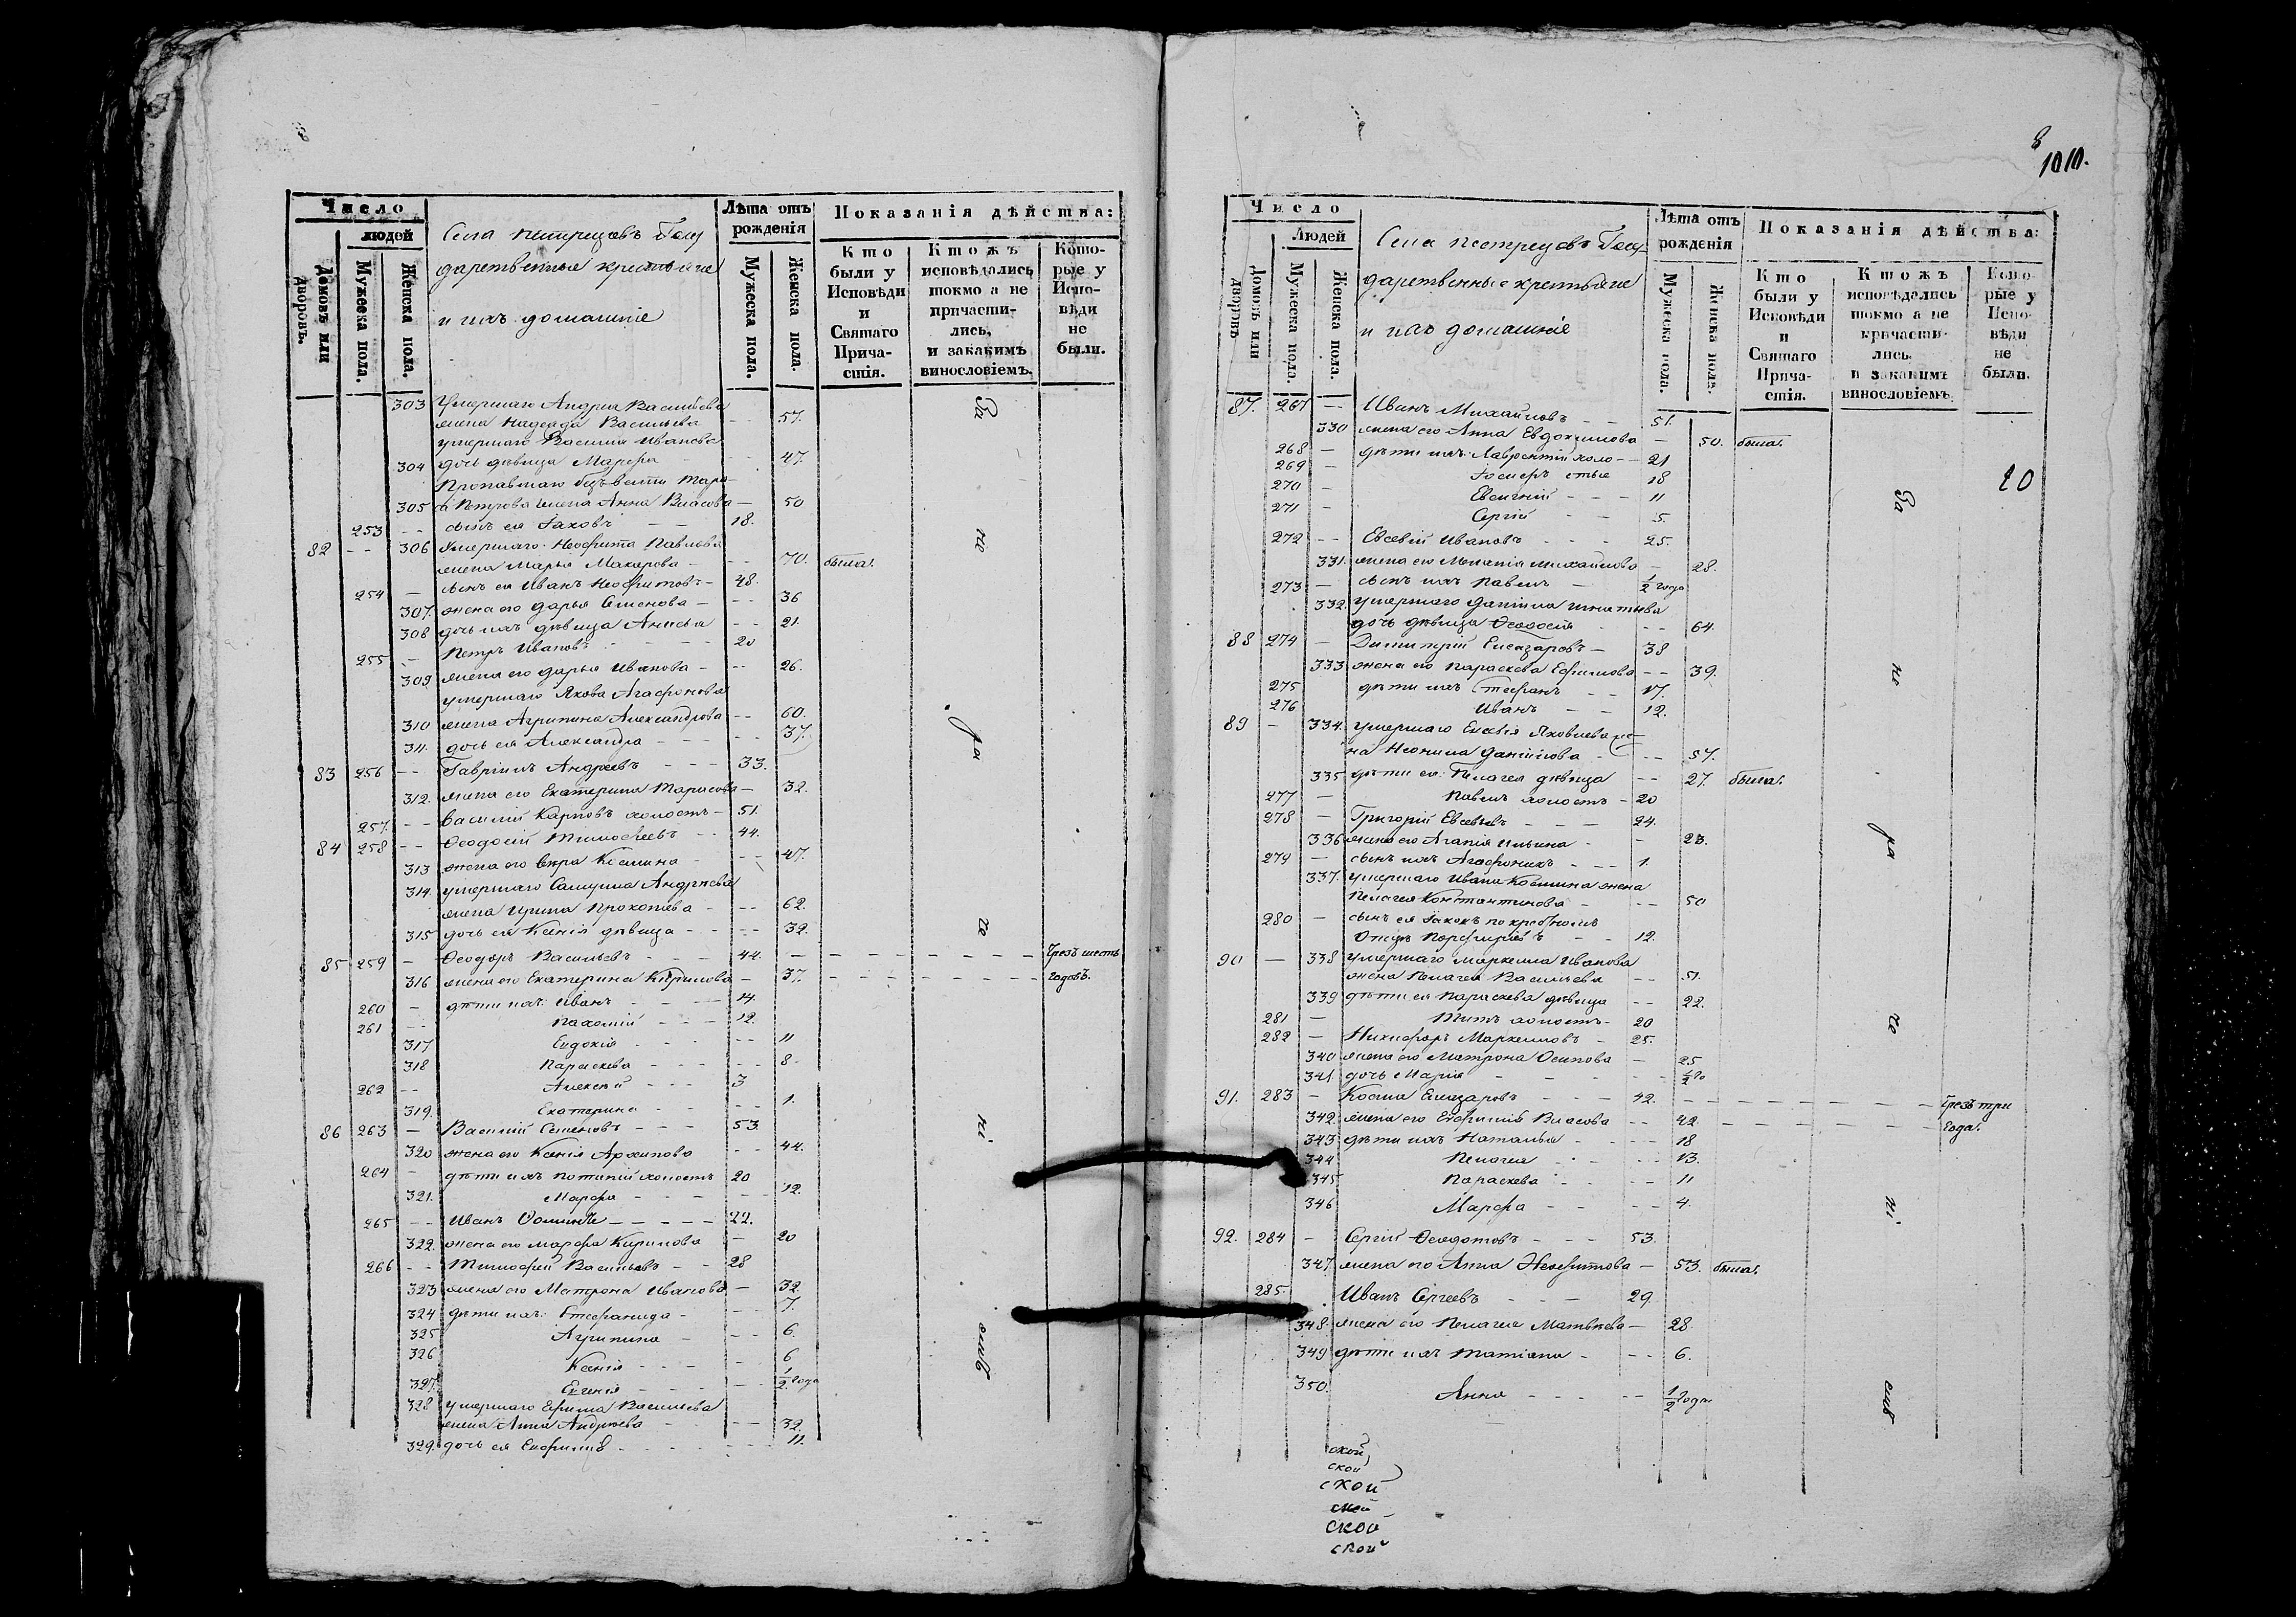 Число
людей
Домовъ или дворовъ.
Мужеска пола.
Женска пола.
Села Пестрецовъ Госу
дарственные крестьяне
и ихъ домашніе
Лѣта отъ рожденія
Мужеска пола.
Женска пола.
Показанія дѣйства:
Кто были у Исповѣди и Святаго Причастія.
Ктожъ исповѣдались токмо а не причастились, и закакимъ винословіемъ.
Которые у Исповѣди не были.
303 Умершаго Андрея Васильева
жена Надежда Васильева - - 57.
умершаго Василія Иванова
304 дочь дѣвица Марфа - - 47.
Пропавшаго безъ вести Тара-
305 са Петрова жена Анна Власова - 50
253 -- сынъ ея Іаковъ - - 18.
82 -- 306 Умершаго Неофита Павлова
жена Марья Макарова - -- 70. была.
254 - сынъ ея Иванъ Неофитовъ - 48.
307. жена его Дарья Семенова - -- 36
308 дочь ихъ дѣвица Анисья -- 21
255 - Петръ Ивановъ - - - 20
309 жена его Дарья Иванова - -- 26.
умершаго Якова Агафонова
310 жена Агрипина Александрова -- 60.
311. дочь ея Александра - - - -- 37.
83 256 -- Гавріилъ Андреевъ - - - 33.
312. жена его Екатерина Тарасова - 32.
257. -- Василій Карповъ холостъ - 51.
84 258 -- Ѳеодосій Тимофеевъ - - 44.
313 жена его Вера Козмина - -- 47.
314. умершаго Самуила Андреева
жена Ирина Прокопіева - -- 62.
315 дочь ея Ксенія дѣвица - - -- 32.
85 259 - Ѳеодоръ Васильевъ - - - 44. - - - - - - - - - Чрезъ шесть
316 жена его Екатерина Кирилова - 37. - - - - - - - - годовъ.
260 - дѣти ихъ: Иванъ - - - - 14.
261 -- Пахомій - - - 12.
317 Евдокія - - - -- 11
318 Параскева - - - -- 8
262 -- Алексѣй - - - 3
319. Екатерина - - -- 1.
86 263 - Василій Семеновъ - - - 53
320 жена его Ксенія Архипова -- 44.
264 - дѣти ихъ Потапій холостъ 20
321. Марфа - - - - -- 12.
265 -- Иванъ Ѳоминъ - - - - - 22.
322. жена его Марфа Кирилова - 20
266 -- Тимофей Васильевъ - - 28
323 жена его Матрона Иванова - 32
324 дѣти ихъ: Стефанида - -- 7.
325 Агрипина - -- 6.
326 Ксенія - - - - 6
327. Евгенія - - - -- 1/2 года
328 умершаго Ефима Васильева
жена Анна Андреева - -- 32.
329. дочь ея Евфимія - - - - 11.
За
не
ра
че
ні
емъ
1010.
Число
Людей
Домовъ или дворовъ
Мужеска пола.
Женска пола.
Села Пестрецовъ Госу-
дарственные крестьяне
и ихъ домашніе
Лѣта отъ рожденія
Мужеска пола.
Женска пола.
Показанія дѣйства:
Кто были у Исповѣди и Святаго Причастія.
Ктожъ исповѣдались токмо а не причастились. и закакимъ винословіемъ.
Которые у Исповѣди не были.
87. 267 -- Иванъ Михайловъ - - 51.
330 жена его Анна Евдокимова - 50. была.
268 - дѣти ихъ: Лаврентій холо- - 21
269 - Іосифъ стые 18
270 - Евгеній - - - 11
271 - Сергій - - 5.
272 -- Евсевій Ивановъ - - - 25.
331. жена его Меланія Михайлова - 28.
273 - сынъ ихъ Павелъ - 1/2 года
332. умершаго Даніила Игнатьева
дочь дѣвица Ѳеодосія - -- 64.
88 274 - Димитрій Елеазаровъ - 38
333 жена его Параскева Ефимова -- 39.
275 дѣти ихъ Стефанъ - - 17.
276 Иванъ - - 12.
89 - 334. умершаго Евсевія Яковлева же-
на Неонила Даніилова - -- 57.
335 дѣти ея: Пелагея дѣвица -- 27. была.
277 - Павелъ холостъ - 20
278 - Григорій Евсевьевъ - - - 24.
336 жена его Агапія Ильина - - 23.
279 - сынъ ихъ Агафоникъ - - - 1.
337. умершаго Ивана Козмина жена
Пелагея Константинова - -- 50
280 - сынъ ея Іаковъ по крестномъ
Отцѣ Порфирьевъ - - 12.
90 - 338 умершаго Маркелла Иванова
жена Пелагея Васильева -- 51.
339 дѣти ея Параскева дѣвица -- 22.
281 - Титъ холостъ - 20
282 - Никифоръ Маркелловъ - 25.
340 жена его Матрона Осипова - 25
341. дочь Марія - - - - 1/2 го
91. 283 - Козма Елеазаровъ - - - 42. - - - - - - - - Чрезъ три
342. жена его Евфимія Власова -- 42. - - - - - - - года.
343 дѣти ихъ Наталья - - - - 18
344 Пелагея - - -- 13.
345 Параскева - - -- 11
346 Марфа - - -- 4.
92. 284 - Сергій Ѳеодотовъ - - - 53.
347. жена его Анна Неофитова - 53. была.
285. Иванъ Сергеевъ - - - 29
348. жена его Пелагея Матвѣева - 28.
349 дѣти ихъ Татіана - -- 6.
350. Анна - - - -- 1/2 года
За
не
ра
че
ні
емъ
ской
ской
ской
ской
ской
ской